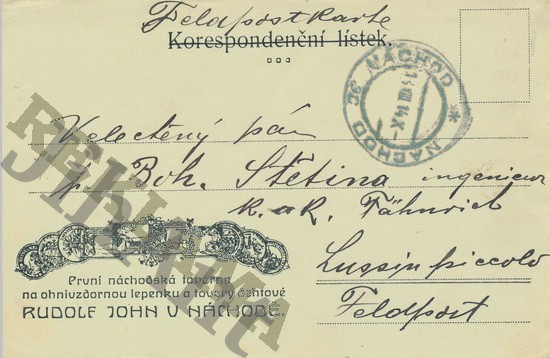 Feldpostkarte
Korespondenční lístek.
NÁCHOD * NÁCHOD 3C
Velectěný pán
p. Boh. Štětina ingenieur
k. u k. Fähnrich
Lussin piccolo
Feldpost
První náchodská továrna
na ohnivzdornou lepenku a tovary dehtové
RUDOLF JOHN V NÁCHODĚ.